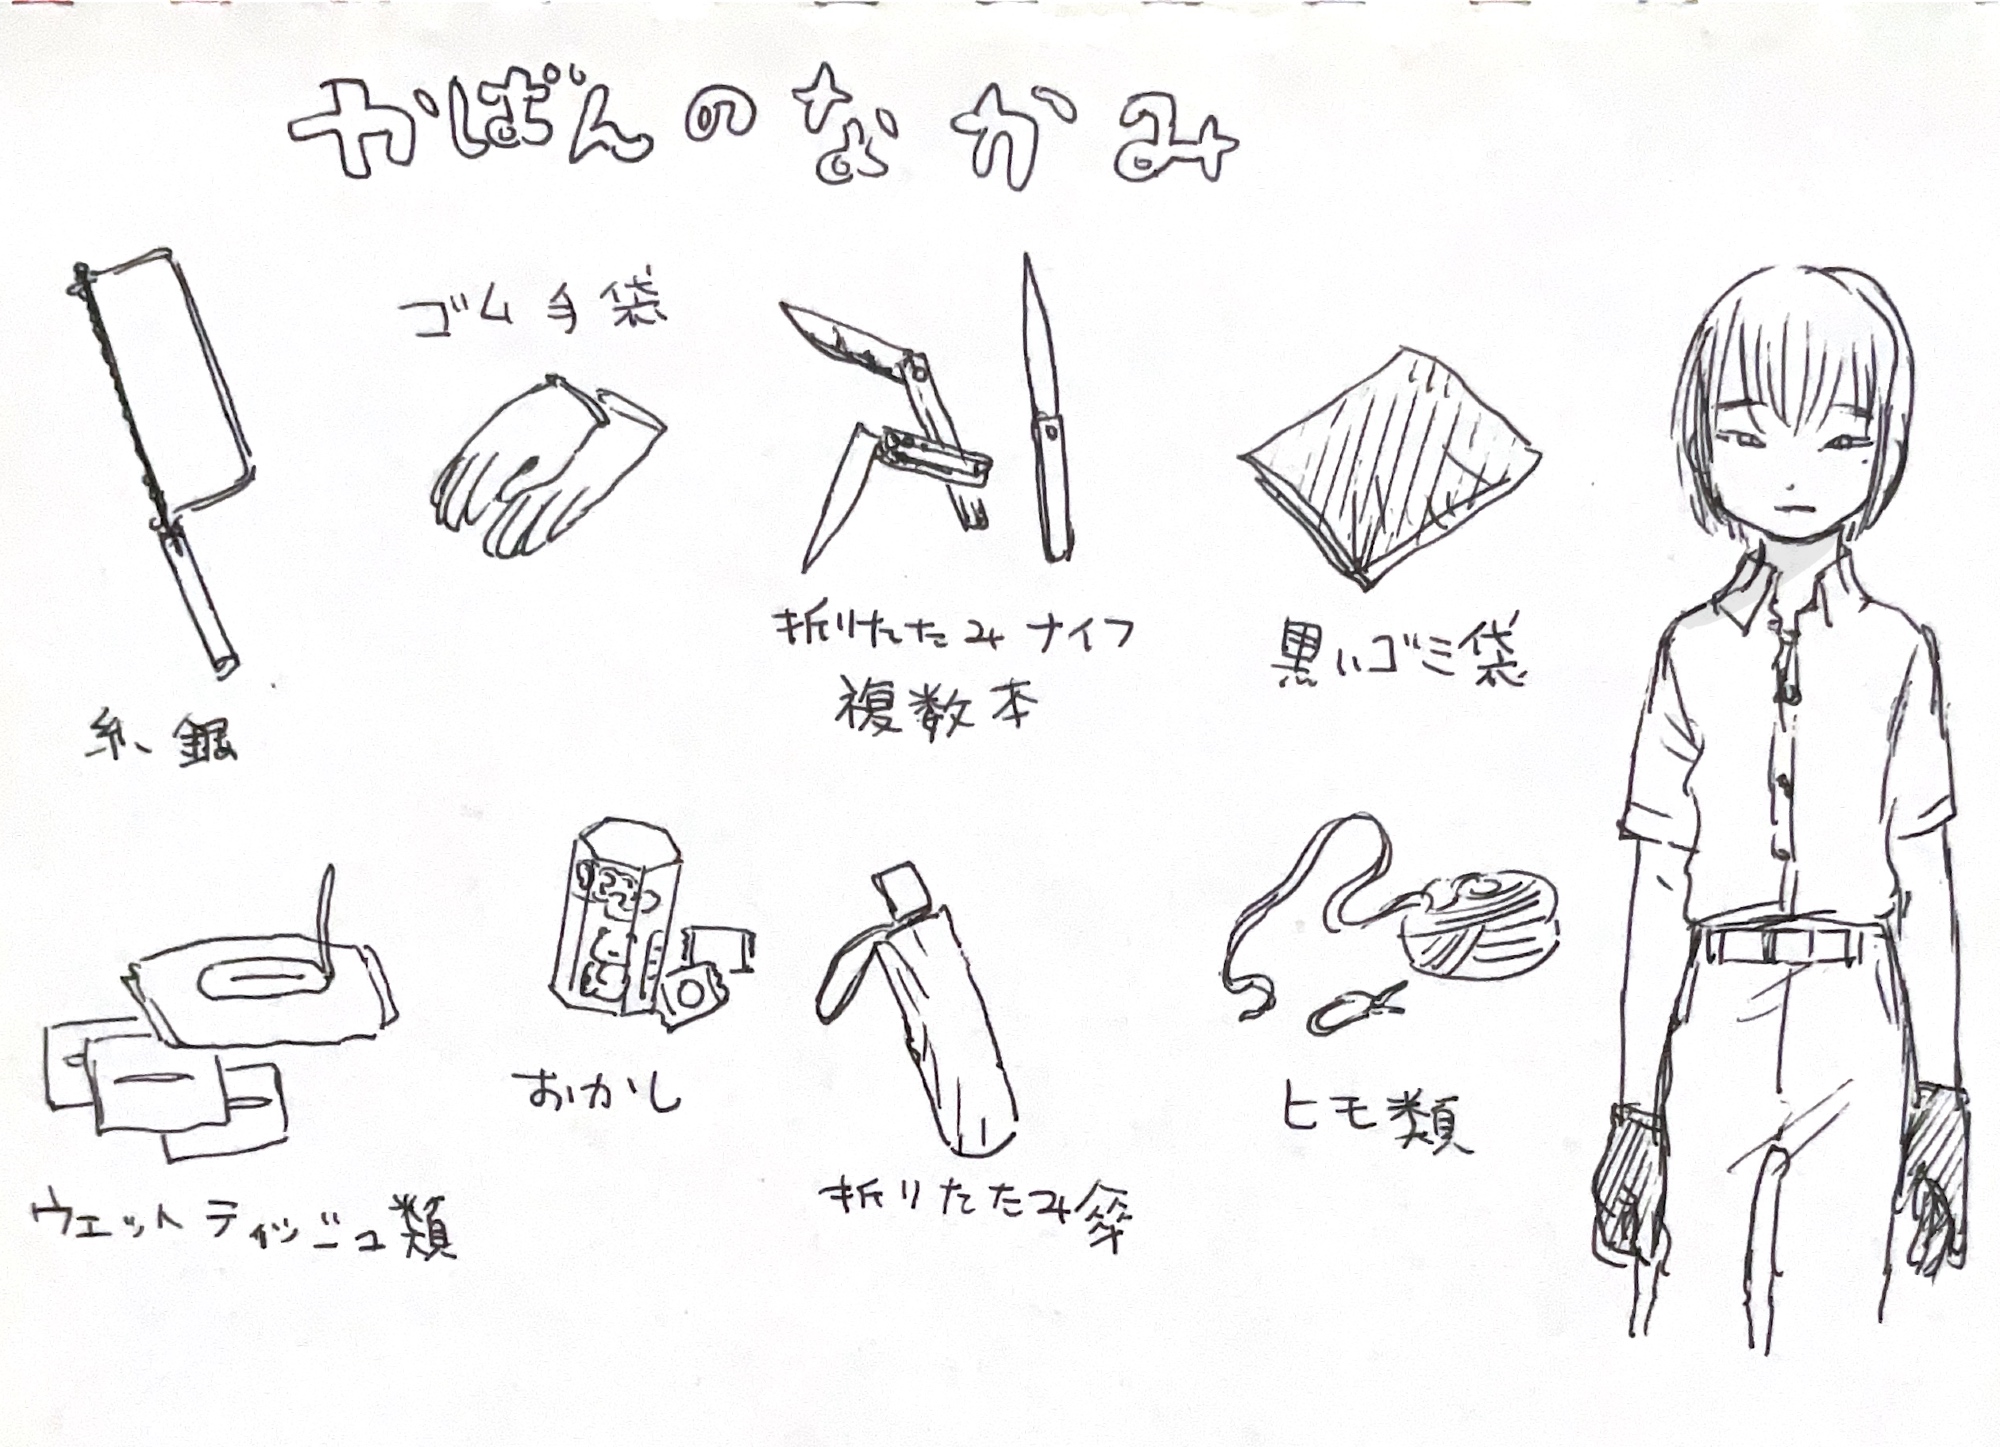 かばんのなかみ
糸鋸
ゴム手袋
折りたたみナイフ
複数本
黒いゴミ袋
ウェットティッシュ類
おかし
折りたたみ傘
ヒモ類